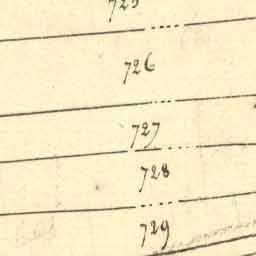 725
726
727
728
729